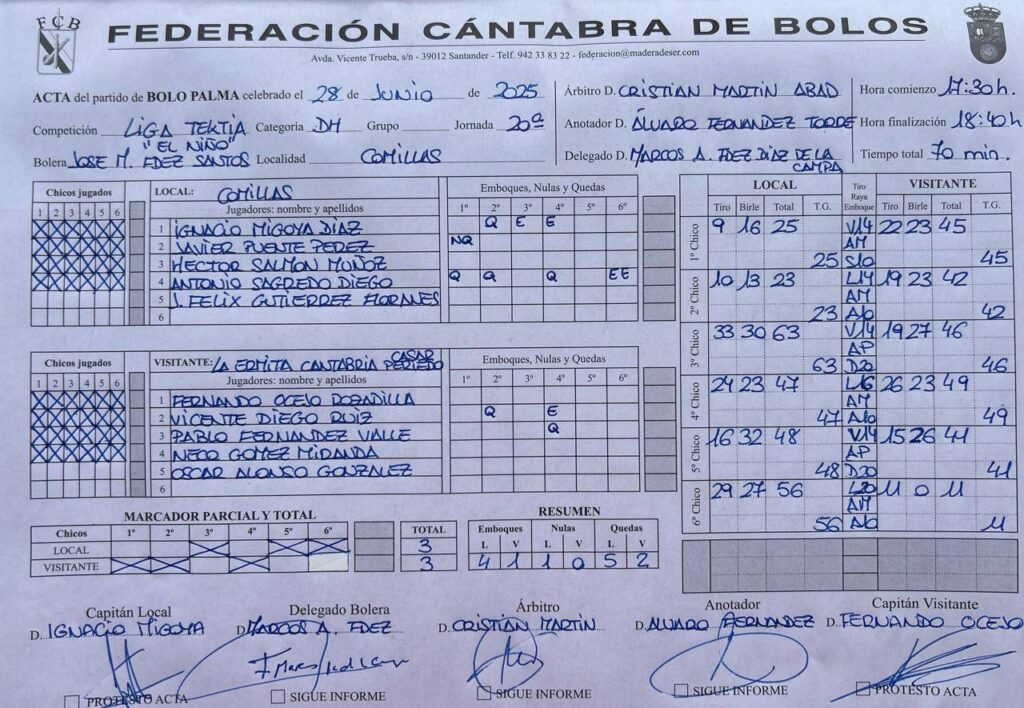 FCB
FEDERACIÓN CÁNTABRA DE BOLOS
Avda. Vicente Trueba, s/n - 39012 Santander - Telf. 942 33 83 22 - federacion@maderadeser.com
ACTA del partido de BOLO PALMA celebrado el 28 de JUNIO de 2025
Competición LIGA TEKTIA Categoría DH Grupo Jornada 20ª
"EL NIÑO"
Bolera JOSE M. FDEZ SANTOS Localidad COMILLAS
Árbitro D. CRISTIAN MARTIN ABAD
Anotador D. ÁLVARO FERNANDEZ TORRE
Delegado D. MARCOS A. FDEZ DIAZ DE LA
CAMPA
Hora comienzo 17:30h.
Hora finalización 18:40h
Tiempo total 70 min.
Chicos jugados
1 2 3 4 5 6
LOCAL: COMILLAS
Jugadores: nombre y apellidos
Emboques, Nulas y Quedas
1º 2º 3º 4º 5º 6º
1 IGNACIO MIGOYA DIAZ Q E E
2 JAVIER PUENTE PEREZ NQ
3 HECTOR SALMON MUÑOZ
4 ANTONIO SAGREDO DIEGO Q Q Q EE
5 J. FELIX GUTIERREZ FLORANES
6
Chicos jugados
1 2 3 4 5 6
VISITANTE: LA ERMITA CANTABRIA CASAR
PERIEDO
Jugadores: nombre y apellidos
Emboques, Nulas y Quedas
1º 2º 3º 4º 5º 6º
1 FERNANDO OCEJO BOBADILLA
2 VICENTE DIEGO RUIZ Q E
3 PABLO FERNANDEZ VALLE Q
4 NECO GOMEZ MIRANDA
5 OSCAR ALONSO GONZALEZ
6
LOCAL Tiro Raya Emboque VISITANTE
Tiro Birle Total T.G. Tiro Birle Total T.G.
1º Chico 9 16 25 25 V14 AM S10 22 23 45 45
2º Chico 10 13 23 23 L14 AM A10 19 23 42 42
3º Chico 33 30 63 63 V14 AP D20 19 27 46 46
4º Chico 24 23 47 47 L16 AM A10 26 23 49 49
5º Chico 16 32 48 48 V14 AP D20 15 26 41 41
6º Chico 29 27 56 56 L20 AM A10 11 0 11 11
MARCADOR PARCIAL Y TOTAL
Chicos 1º 2º 3º 4º 5º 6º TOTAL
LOCAL X X X 3
VISITANTE X X X 3
RESUMEN
Emboques Nulas Quedas
L V L V L V
4 1 1 0 5 2
Capitán Local
D. IGNACIO MIGOYA
PROTESTO ACTA
Delegado Bolera
D. MARCOS A. FDEZ
SIGUE INFORME
Árbitro
D. CRISTIAN MARTIN
SIGUE INFORME
Anotador
D. ALVARO FERNANDEZ
SIGUE INFORME
Capitán Visitante
D. FERNANDO OCEJO
PROTESTO ACTA